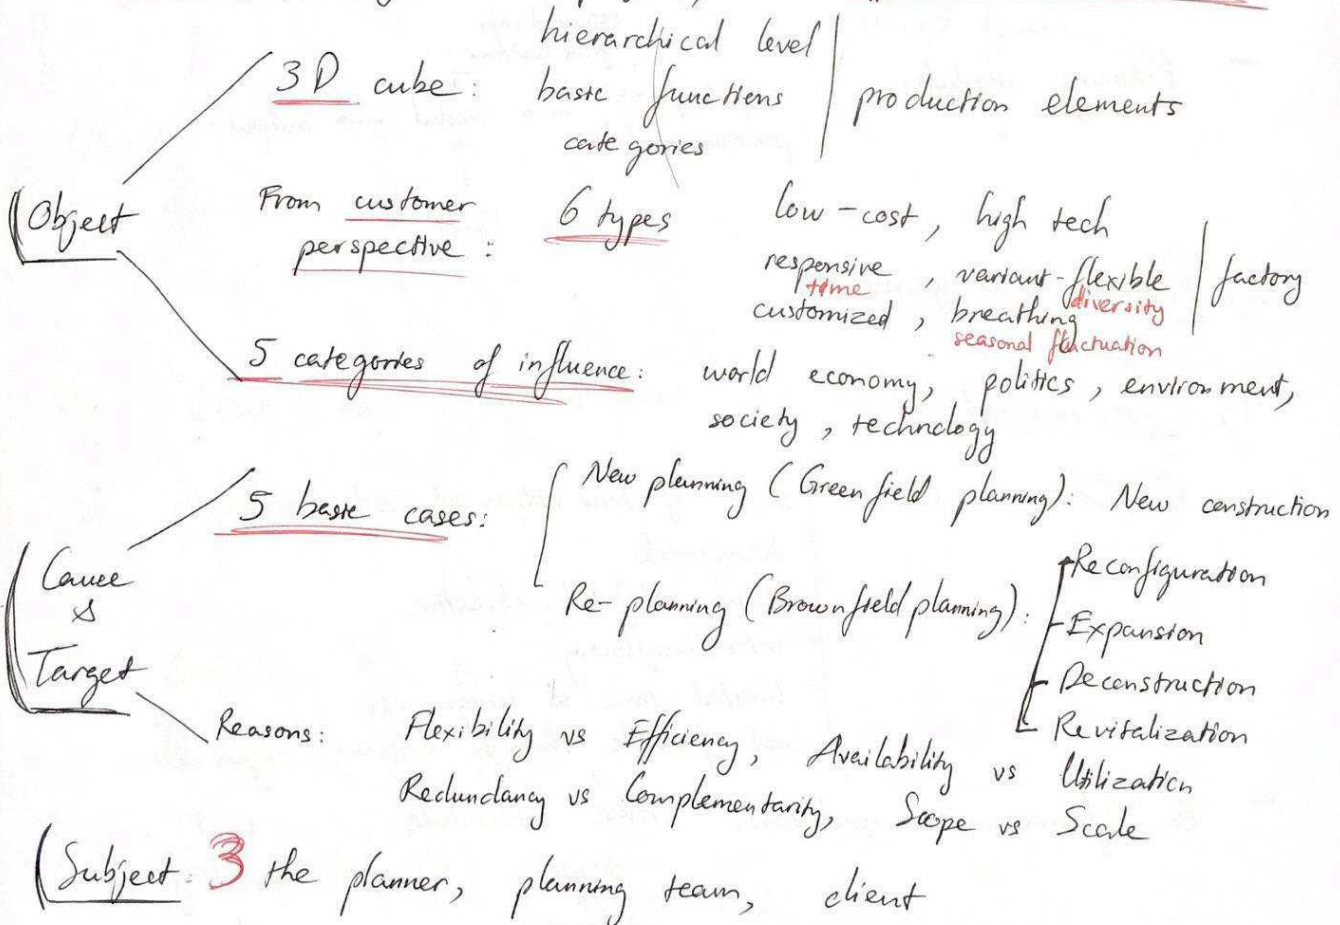 hierarchical level
3D cube: basic functions | production elements
categories
(Object
From customer 6 types low-cost, high tech
perspective :
responsive, variant-flexible | factory
time diversity
customized, breathing
seasonal fluctuation
5 categories of influence: world economy, politics, environment,
society, technology
5 basic cases: New planning (Greenfield planning): New construction
Cause
&
Target
Re-planning (Brownfield planning): Reconfiguration
Expansion
Deconstruction
Revitalization
Reasons: Flexibility vs Efficiency, Availability vs Utilization
Redundancy vs Complementarity, Scope vs Scale
(Subject: 3 the planner, planning team, client